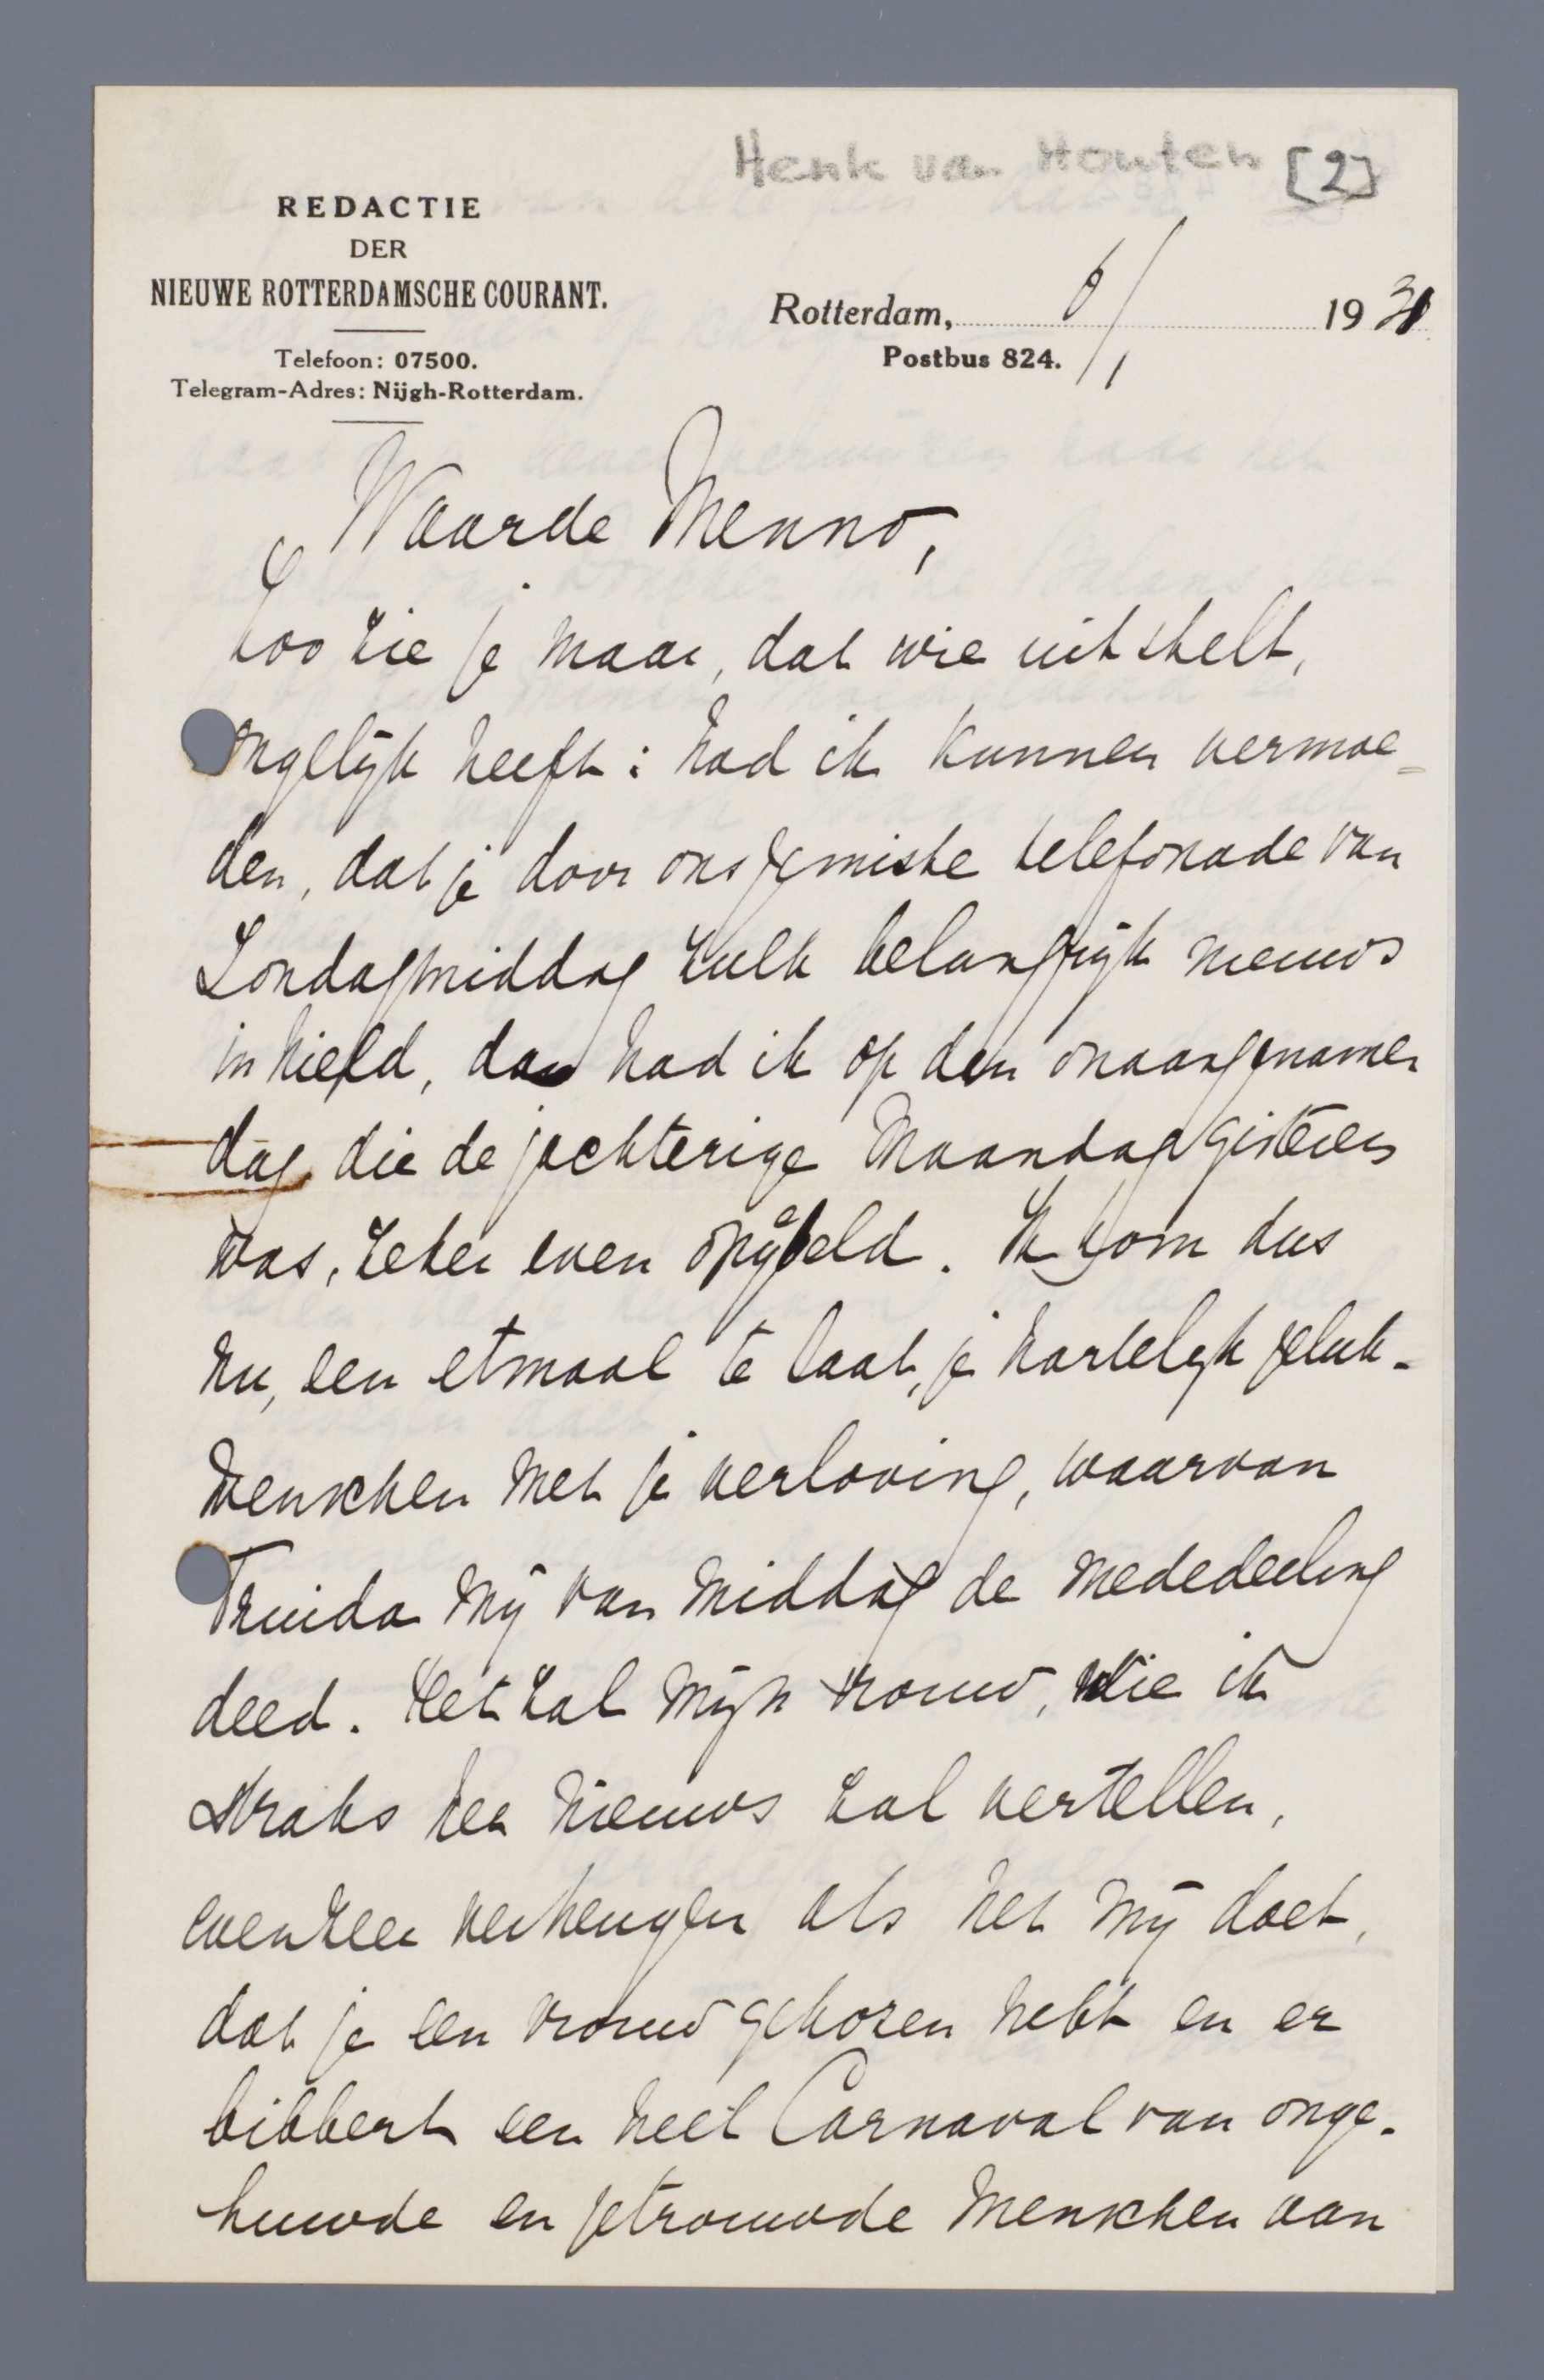 Henk van Houten [2]
REDACTIE
DER
NIEUWE ROTTERDAMSCHE COURANT.
Telefoon: 07500.
Telegram-Adres: Nijgh-Rotterdam.
Rotterdam, 6/1 1931
Postbus 824.
Waarde Menno,
Zoo zie je maar, dat wie uitstelt,
ongelijk heeft: had ik kunnen vermoe-
den, dat je door ons gemiste telefonade van
Zondagmiddag zulk belangrijk nieuws
inhield, dan had ik op den onaangenamen
dag, die de jachterige Maandag gisteren
was, zeker even opgebeld. Ik kom dus
nu, een etmaal te laat, je hartelijk geluk-
wenschen met je verloving, waarvan
Truida mij van middag de mededeeling
deed. Het zal mijn vrouw, die ik
straks het nieuws zal vertellen,
evenzeer verheugen als het mij doet,
dat je een vrouw gekozen hebt en er
bibbert een heel Carnaval van onge-
huwde en getrouwde menschen van